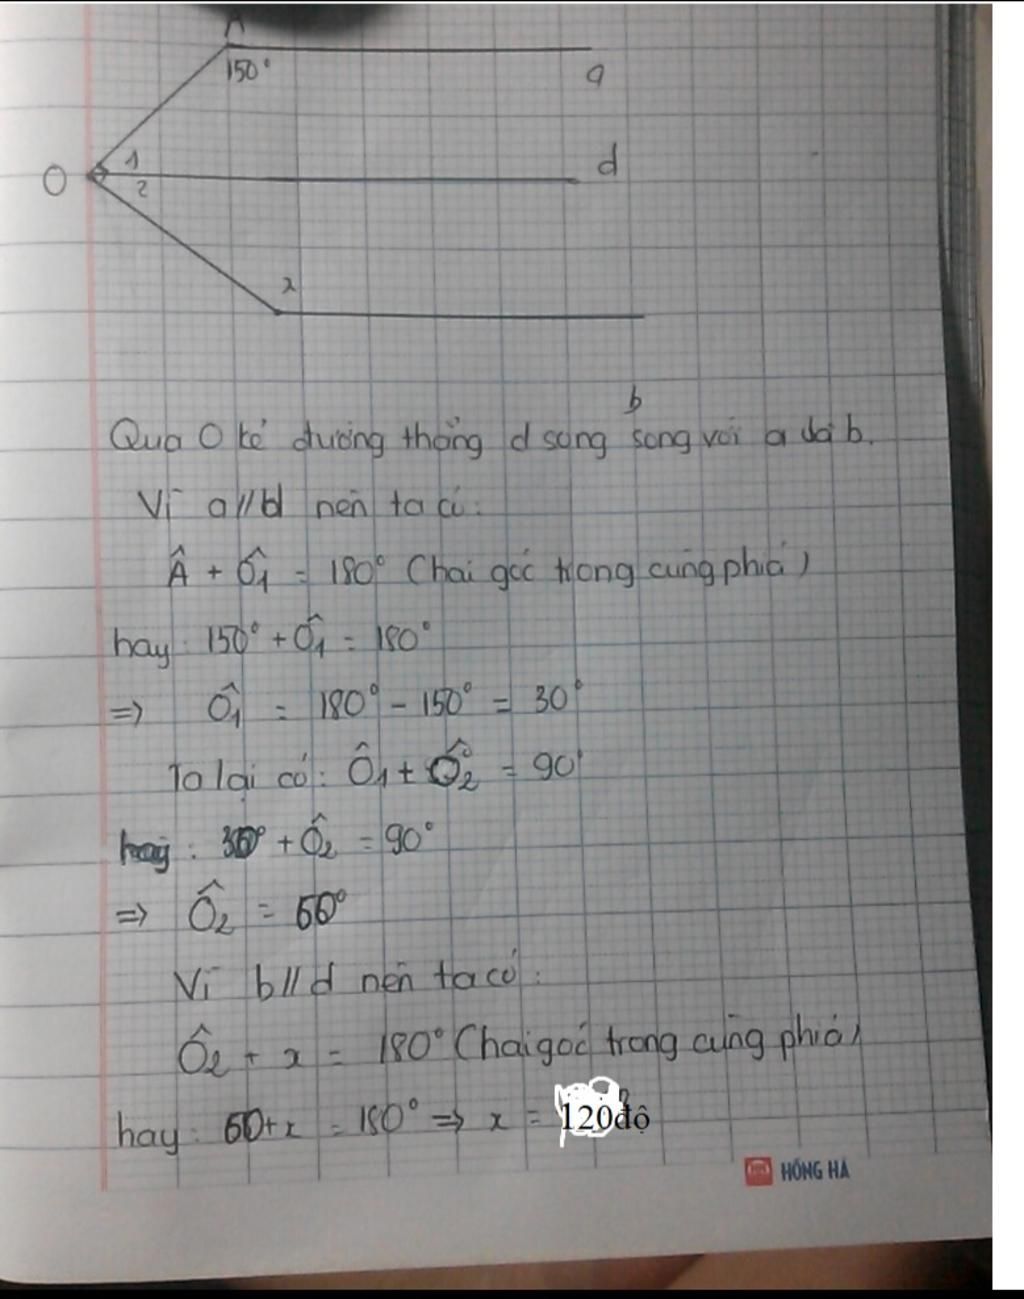 A
150°
a
O
1
2
d
x
b
Qua O kẻ đường thẳng d song song với a và b.
Vì a//d nên ta có:
Â + Ô1 = 180° (hai góc trong cùng phía)
hay: 150° + Ô1 = 180°
=> Ô1 = 180° - 150° = 30°
Ta lại có: Ô1 + Ô2 = 90°
hay: 30° + Ô2 = 90°
=> Ô2 = 60°
Vì b//d nên ta có:
Ô2 + x = 180° (hai góc trong cùng phía)
hay: 60+x = 180° => x = 120độ
HỒNG HÀ